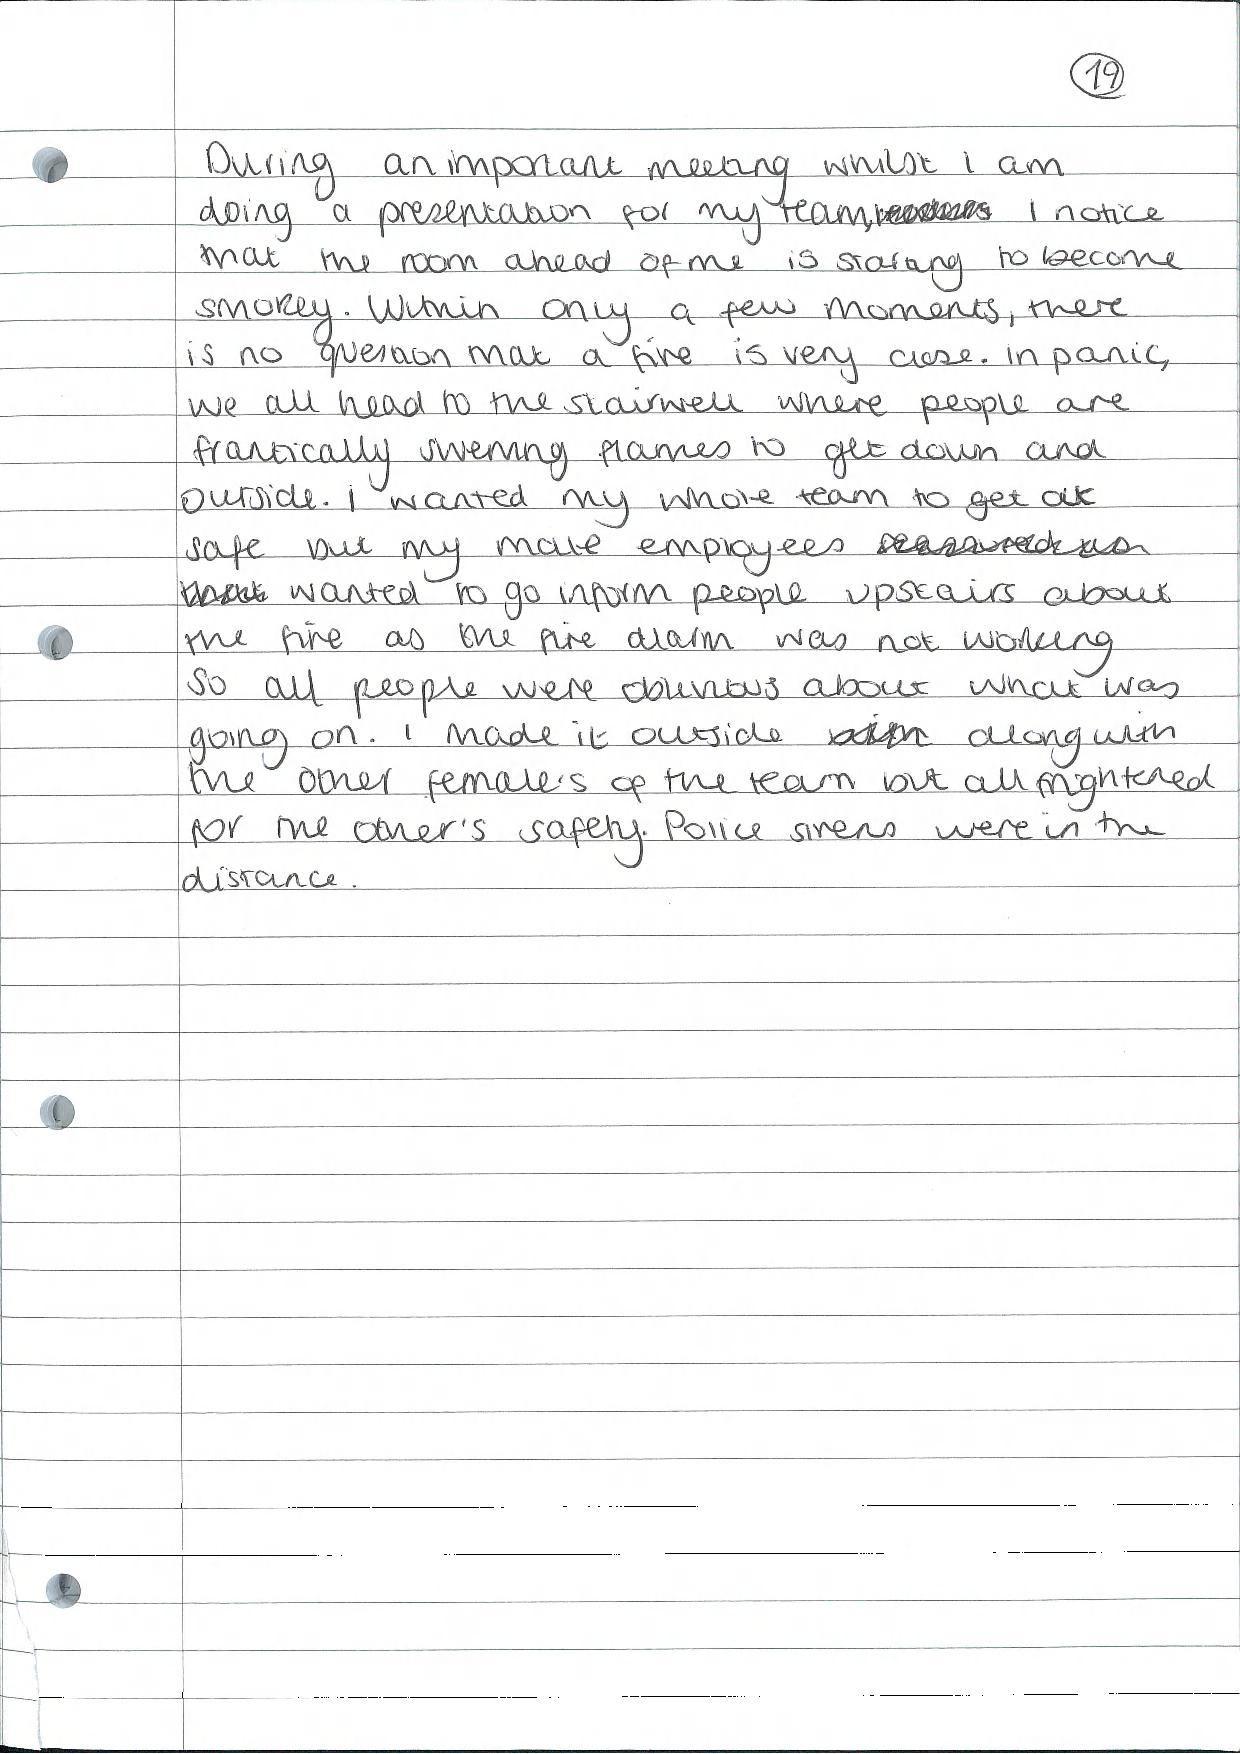 19
During an important meeting whilst I am
doing a presentation for my team, I notice
that the room ahead of me is starting to become
smokey. Within only a few moments, there
is no question that a fire is very close. In panic,
we all head to the stairwell where people are
frantically swerving flames to get down and
outside. I wanted my whole team to get out
safe but my male employees
wanted to go inform people upstairs about
the fire as the fire alarm was not working
so all people were oblivious about what was
going on. I made it outside along with
the other female's of the team but all frightened
for the other's safety. Police sirens were in the
distance.